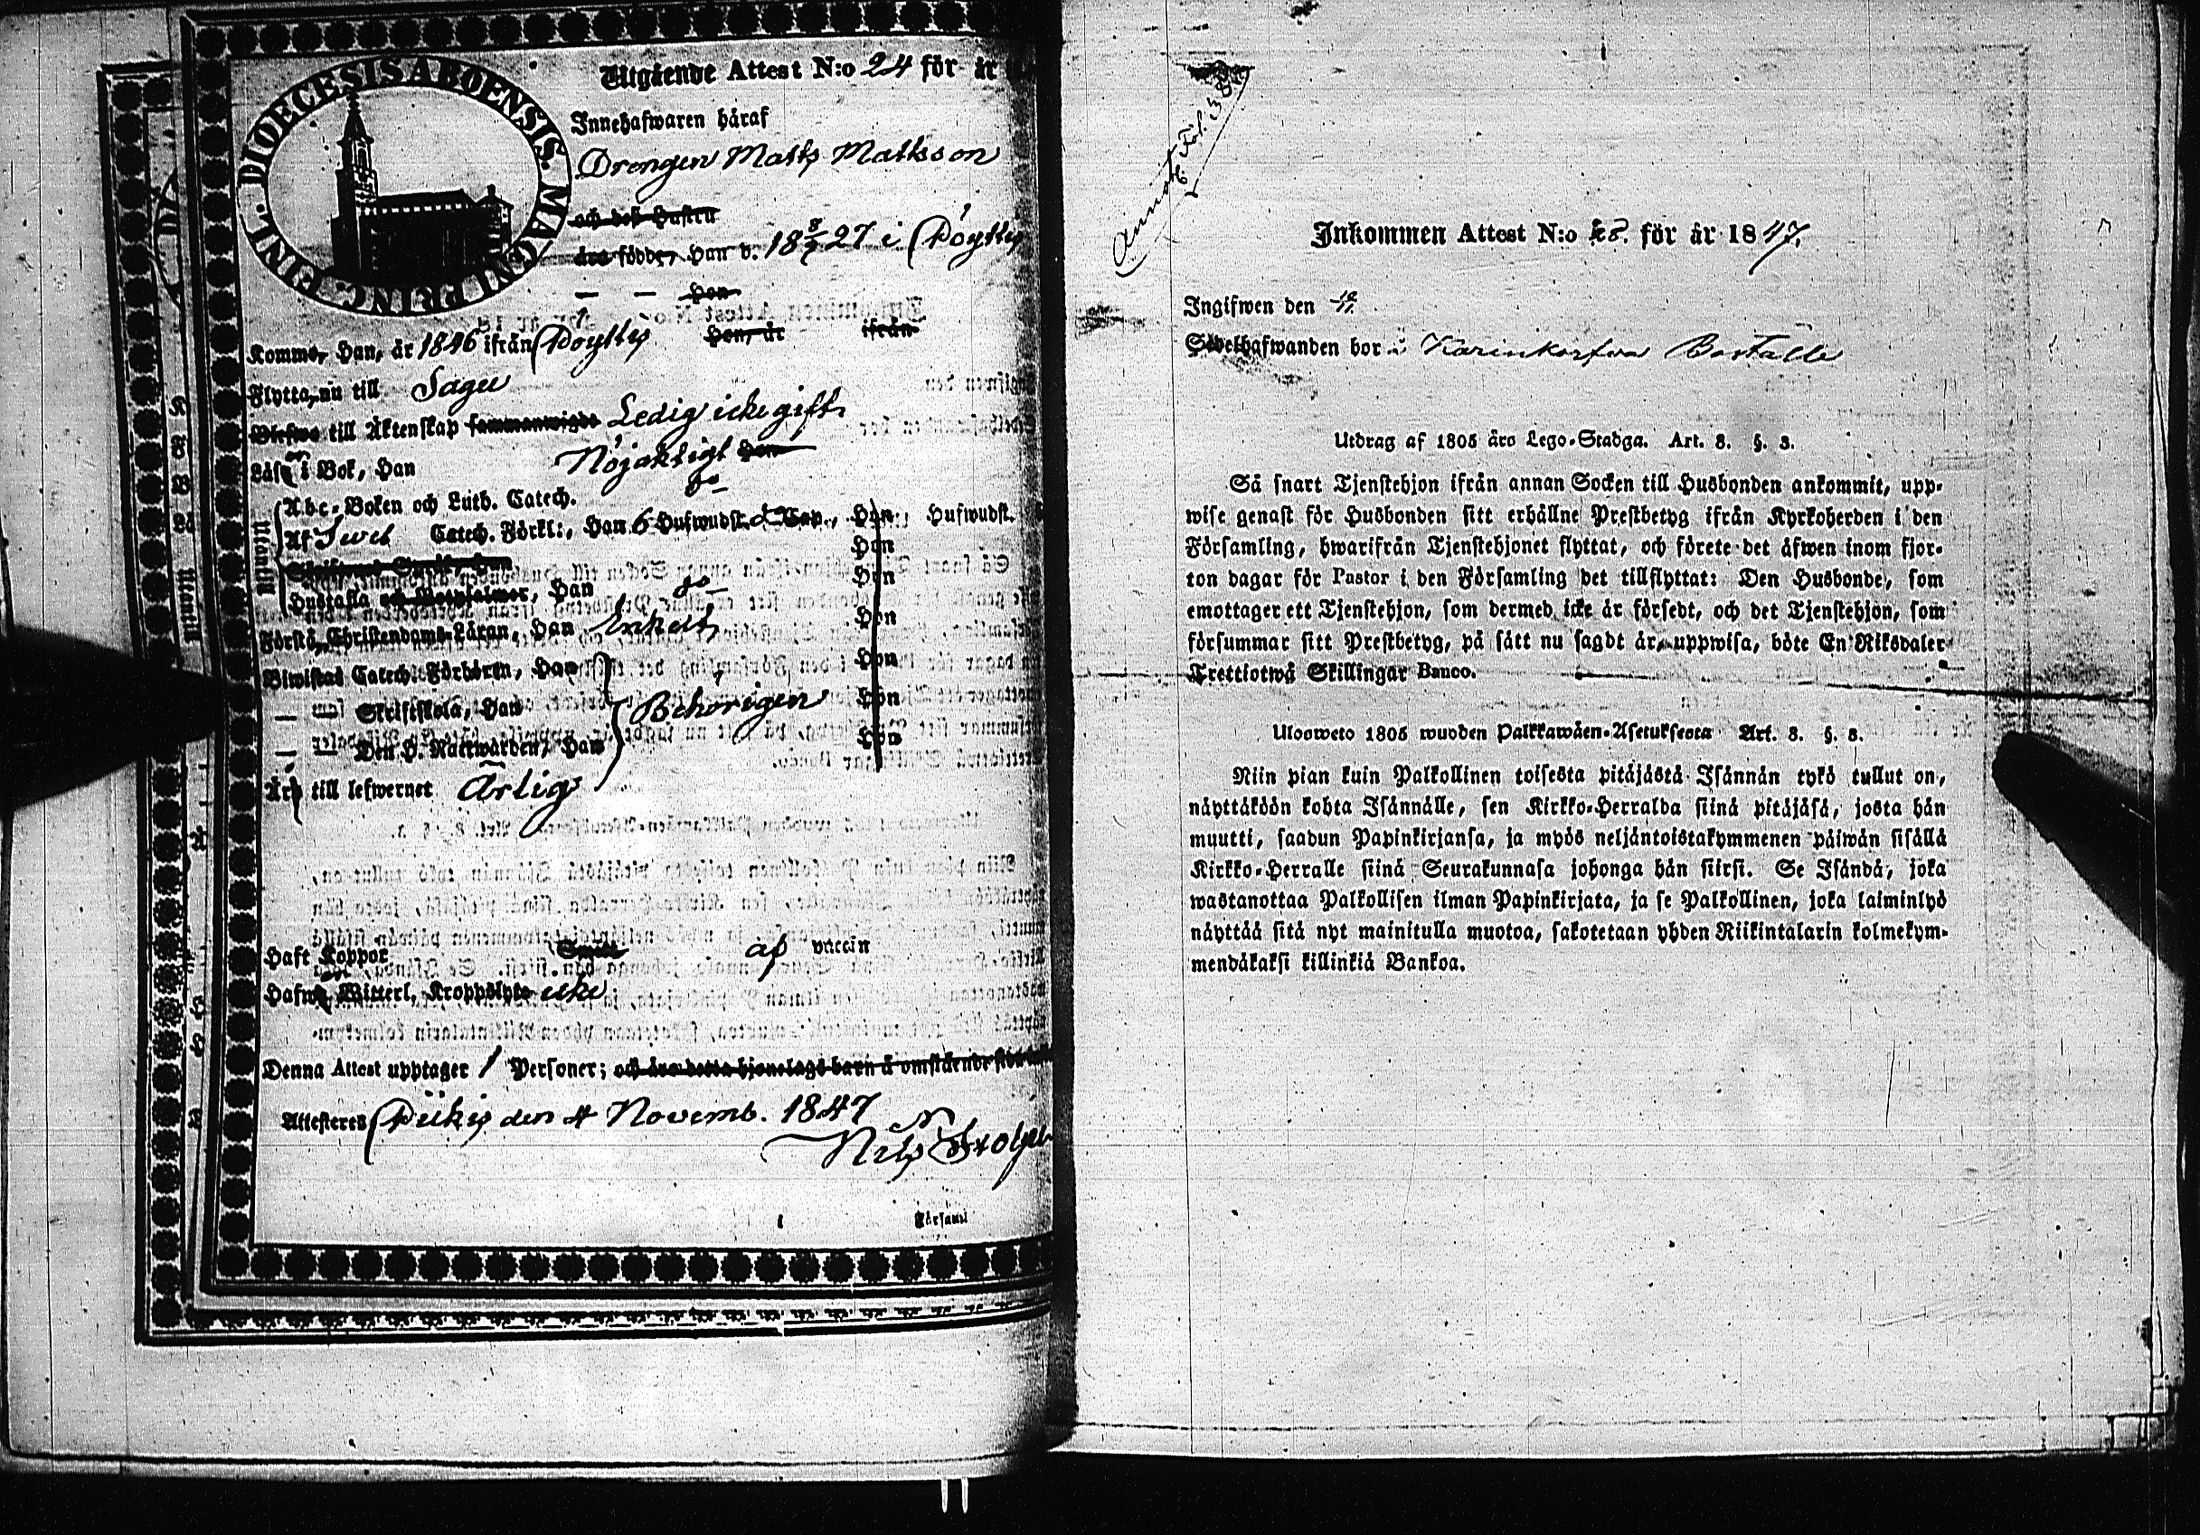 DIOECESIS ABOENSIS. MAGNI PRINC. FINL.
Utgående Attest N:o 24 för år
Innehafwaren häraf
Drengen Matts Mattsson
och dess Hustru
äro födde, Han d. 18 8/7 27 i Pöytys
— — Hon
Kommo, Han, år 1846 ifrån Pöytys Hon, år ifrån
Flytta, nu till Sagu
Blefwo till Äktenskap sammanwigde Ledig icke gift
Läsa i Bok, Han Nöjaktigt Hon
Utantill
Abc-Boken och Luth. Catech. do
Af Sweb Catech. Förkl:, Han 6 Hufwudst. Cap., Hon, Hufwudst.
Hon
Hustafla, Han do — Hon
Förstå, Christendoms-Läran, Han Enkelt Hon
Biwistas Catech. Förhören, Han Hon
— — Skriftskola, Han Behörigen Hon
— — Den H. Nattwarden, Han Hon
Är till lefwernet Ärlig
Haft Koppor
Hafwa Witterl. Kroppslyte icke
Denna Attest upptager 1 Personer; och äro detta hjonelags barn å omstående sida
Attesteres Piikis den 4 Novemb. 1847
Nils
Församl
Annot. Fol. 38
Inkommen Attest N:o för år 1847.
Ingifwen den
Sedelhafwanden bor i Karinkorfva Boställe
Utdrag af 1805 års Lego-Stadga. Art. 8. §. 3.
Så snart Tjenstehjon ifrån annan Socken till Husbonden ankommit, upp-
wise genast för Husbonden sitt erhållne Prestbetyg ifrån Kyrkoherden i den
Församling, hwarifrån Tjenstehjonet flyttat, och förete det äfwen inom fjor-
ton dagar för Pastor i den Församling det tillflyttat: Den Husbonde, som
emottager ett Tjenstehjon, som dermed icke är försedt, och det Tjenstehjon, som
försummar sitt Prestbetyg, på sätt nu sagdt är, uppwisa, böte En Riksdaler
Trettiotwå Skillingar Banco.
Ulosweto 1805 wuoden Palkkawäen-Asetuksesta Art. 8. §. 3.
Niin pian kuin Palkollinen toisesta pitäjästä Isännän tykö tullut on,
näyttäköön kohta Isännälle, sen Kirkko-Herralda siinä pitäjäsä, josta hän
muutti, saadun Papinkirjansa, ja myös neljäntoistakymmenen päiwän sisällä
Kirkko-Herralle siinä Seurakunnasa johonga hän siirsi. Se Isändä, joka
wastanottaa Palkollisen ilman Papinkirjata, ja se Palkollinen, joka laiminlyö
näyttää sitä nyt mainitulla muotoa, sakotetaan yhden Riikintalarin kolmekym-
mendäkaksi killinkiä Bankoa.